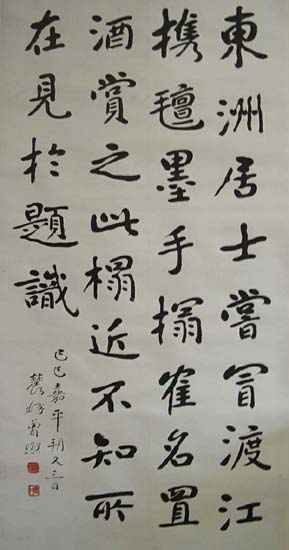 東洲居士嘗冒渡江
携氈墨手搨隺名置
酒賞之此榻近不知所
在見於題識
己巳嘉平朔又三日
農髯曾熙